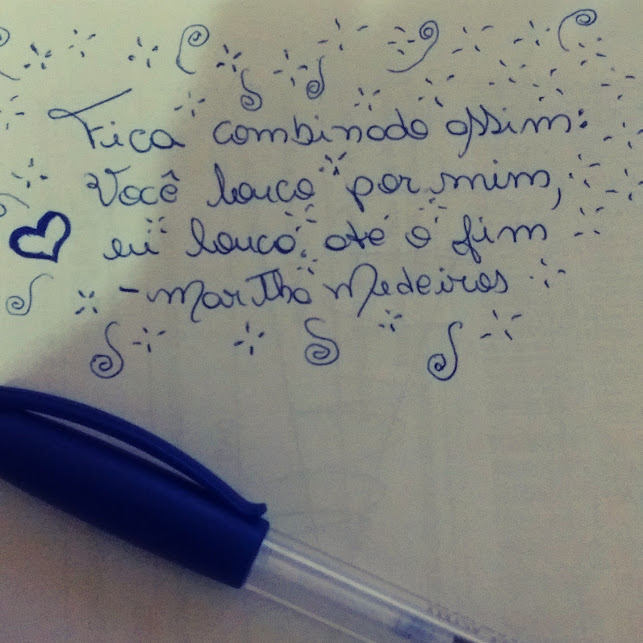 Fica combinado assim:
Você louco por mim,
eu louca até o fim
- Martha Medeiros